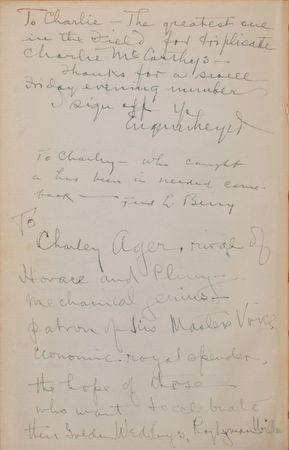 To Charlie – The greatest one
in the Field for triplicate
Charlie McCarthys –
Thanks for a swell
Friday evening number
I sign off
To Charley – who caught
a has been in needed come-
back – Fred L. Berry
To
Charley Ager, rival of
Horace and Pliny –
mechanical genius –
patron of His Masters Voice,
economic-royal spender,
the hope of those
who want to celebrate
their Golden Weddings, Ray Lyman Wilbur